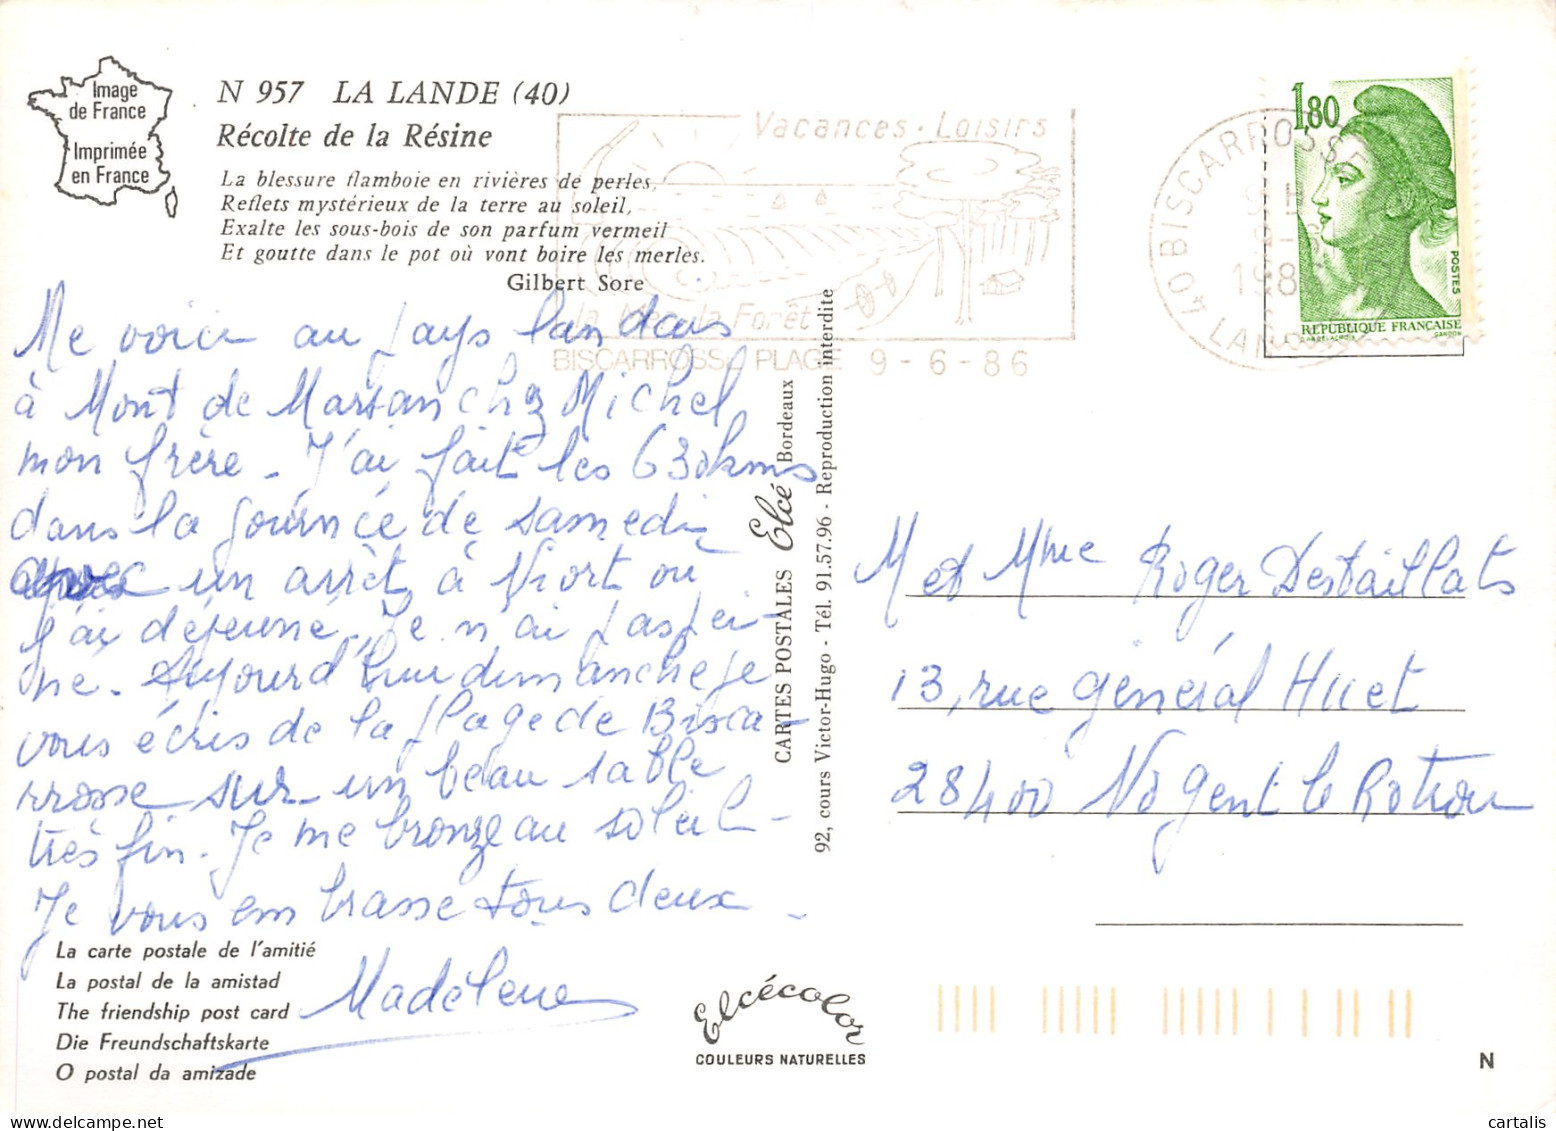 Image
de France
Imprimée
en France
N 957 LA LANDE (40)
Récolte de la Résine
La blessure flamboie en rivières de perles,
Reflets mystérieux de la terre au soleil,
Exalte les sous-bois de son parfum vermeil
Et goutte dans le pot où vont boire les merles.
Gilbert Sore
Vacances - Loisirs
la Mer la Forêt
BISCARROSSE PLAGE 9 - 6 - 86
40 BISCARROSSE
9 H
9 - 6
1986
LANDES
1,80
POSTES
REPUBLIQUE FRANÇAISE
GANDON
Me voici au pays landais
à Mont de Marsan chez Michel,
mon frère - J'ai fait les 630 kms
dans la journée de samedi,
avec un arrêt à Niort où
j'ai déjeuné. Je n'ai pas pei-
né. Aujourd'hui dimanche je
vous écris de la plage de Bisca-
rrosse sur un beau sable
très fin. Je me bronze au soleil -
Je vous embrasse tous deux -
Madeleine
La carte postale de l'amitié
La postal de la amistad
The friendship post card
Die Freundschaftskarte
O postal da amizade
CARTES POSTALES Elcé Bordeaux
92, cours Victor-Hugo - Tél. 91.57.96 - Reproduction interdite
Elcécolor
COULEURS NATURELLES
M et Mme Roger Destaillats
13, rue général Huet
28400 Nogent le Rotrou
N
cartalis